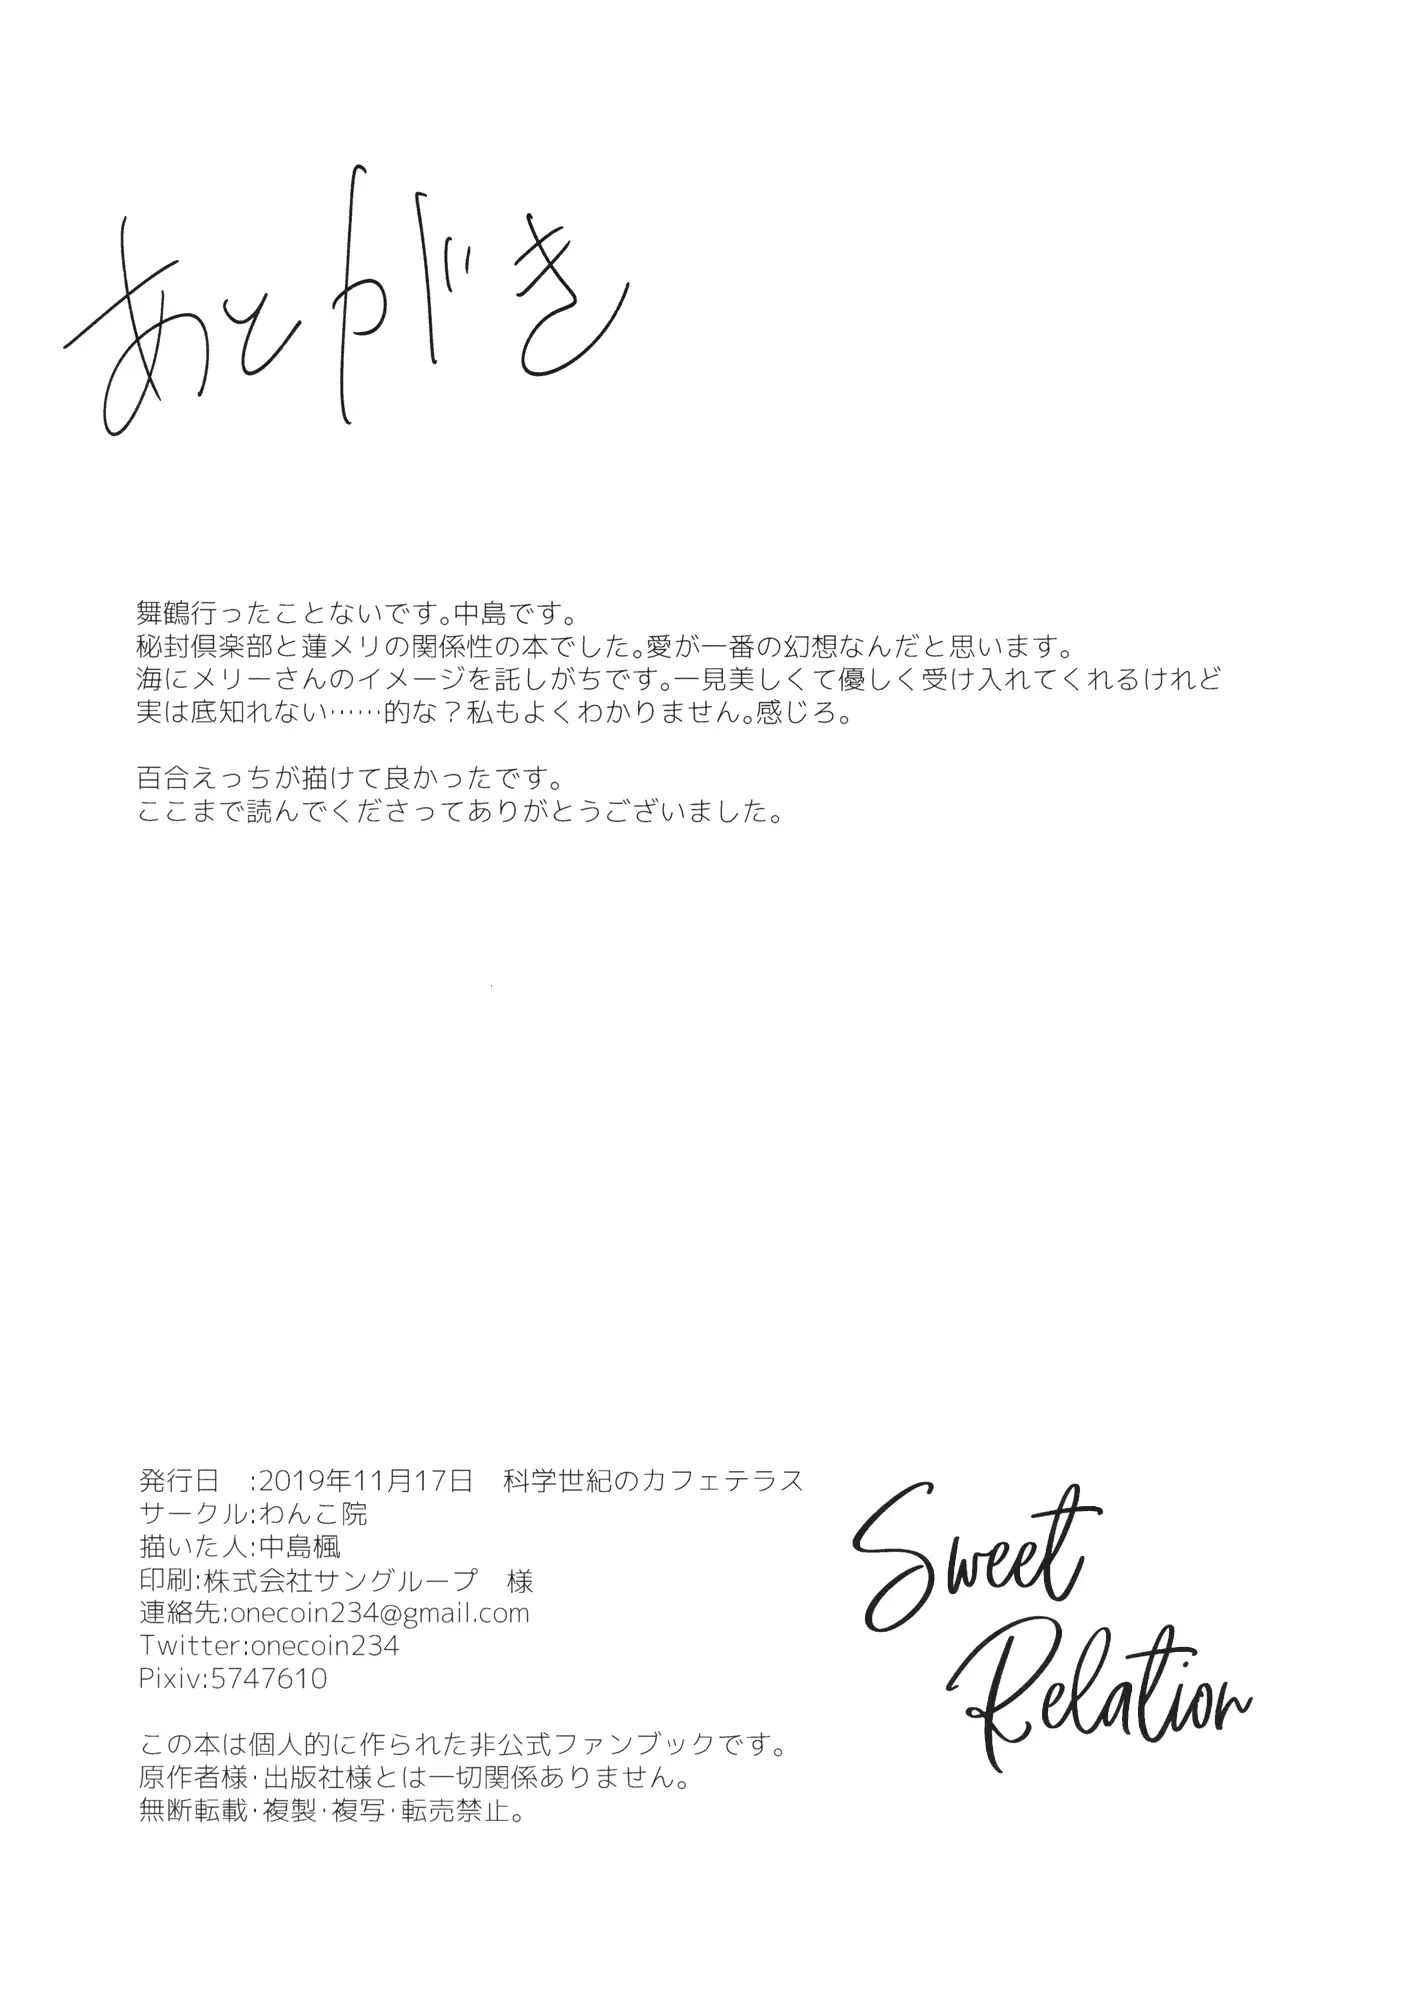 あとがき
舞鶴行ったことないです。中島です。
秘封倶楽部と蓮メリの関係性の本でした。愛が一番の幻想なんだと思います。
海にメリーさんのイメージを託しがちです。一見美しくて優しく受け入れてくれるけれど
実は底知れない……的な？私もよくわかりません。感じろ。
百合えっちが描けて良かったです。
ここまで読んでくださってありがとうございました。
発行日　:2019年11月17日　科学世紀のカフェテラス
サークル:わんこ院
描いた人:中島楓
印刷:株式会社サングループ　様
連絡先:onecoin234@gmail.com
Twitter:onecoin234
Pixiv:5747610
この本は個人的に作られた非公式ファンブックです。
原作者様･出版社様とは一切関係ありません。
無断転載･複製･複写･転売禁止。
Sweet
Relation